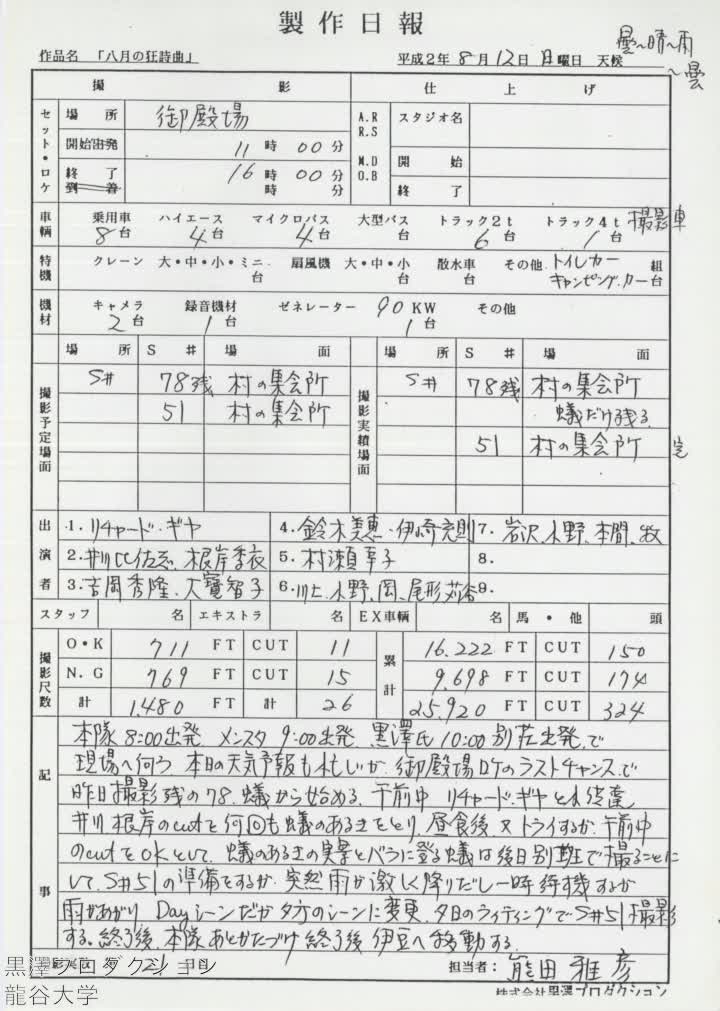 製作日報
作品名 「八月の狂詩曲」 平成2年 8月 12日 日曜日 天候 曇〜晴〜雨〜曇
撮影 仕上げ
セット・ロケ 場所 御殿場 A.R R.S スタジオ名
開始 出発 11時 00分 M.D O.B 開始
終了 到着 16時 00分 終了
時 分
車輌 乗用車 8台 ハイエース 4台 マイクロバス 4台 大型バス 台 トラック2t 6台 トラック4t 1台 撮影車
特機 クレーン 大・中・小・ミニ 台 扇風機 大・中・小 台 散水車 台 その他 トイレカー 組
キャンピングカー 台
機材 キャメラ 2台 録音機材 1台 ゼネレーター 90KW 1台 その他
撮影予定場面 場所 S# 場面 撮影実績場面 場所 S# 場面
S# 78残 村の集会所 S# 78残 村の集会所
51 村の集会所 蟻だけ残る
51 村の集会所 完
出演者 1. リチャード・ギヤ 4. 鈴木美恵・伊崎充則 7. 岩沢、木野、本間、牧
2. 井川比佐志、根岸季衣 5. 村瀬幸子 8.
3. 吉岡秀隆、大寶智子 6. 川上、木野、岡、尾形、苅谷 9.
スタッフ 名 エキストラ 名 EX車輌 名 馬・他 頭
撮影尺数 O・K 711 FT CUT 11 累計 16.222 FT CUT 150
N.G 769 FT CUT 15 9.698 FT CUT 174
計 1.480 FT 計 26 25.920 FT CUT 324
記事 本隊 8:00出発 メンスタ 9:00出発 黒澤氏 10:00 別荘出発で
現場へ向う 本日の天気予報も 御殿場ロケのラストチャンスで
昨日撮影残の78. 蟻から始める. 午前中 リチャード・ギヤ
井川 根岸のcutを何回も蟻のあるきをとり、昼食後 又トライするが. 午前中
のcutをOKとして、蟻のあるきの実景とバラに登る蟻は後日別班で撮ることに
して、S#51の準備をするが、突然雨が激しく降りだし一時待機するが
雨があがり、Dayシーンだが夕方のシーンに変更、夕日のライティングでS#51撮影
する。終了後、本隊あとかたづけ 終了後 伊豆へ移動する.
撮影実数 第 21 日目 担当者: 熊田雅彦
株式会社黒澤プロダクション
黒澤プロダクション
龍谷大学